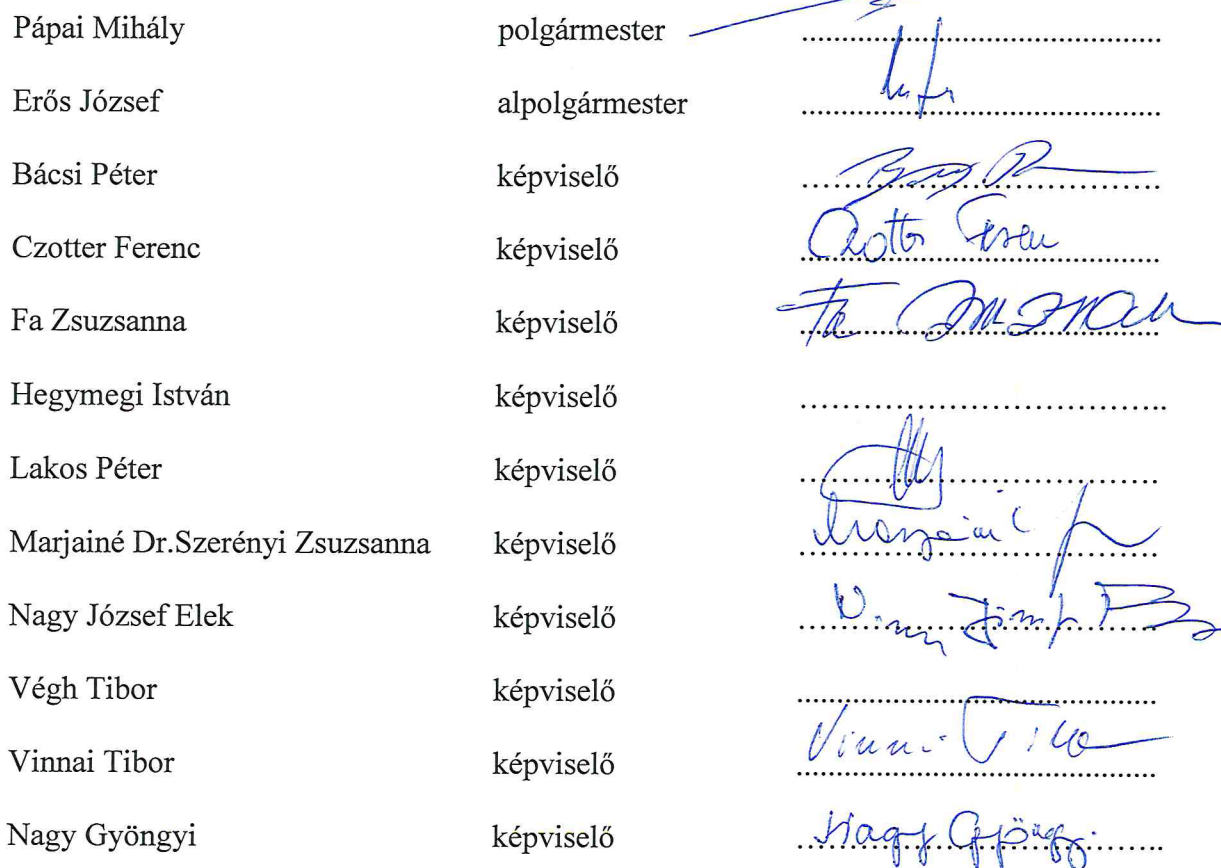 Pápai Mihály polgármester ................................................
Erős József alpolgármester ................................................
Bácsi Péter képviselő ................................................
Czotter Ferenc képviselő Czotter Ferenc
Fa Zsuzsanna képviselő Fa Zsuzsanna
Hegymegi István képviselő ................................................
Lakos Péter képviselő ................................................
Marjainé Dr.Szerényi Zsuzsanna képviselő Marjainé
Nagy József Elek képviselő Nagy József
Végh Tibor képviselő ................................................
Vinnai Tibor képviselő Vinnai Tibor
Nagy Gyöngyi képviselő Nagy Gyöngyi